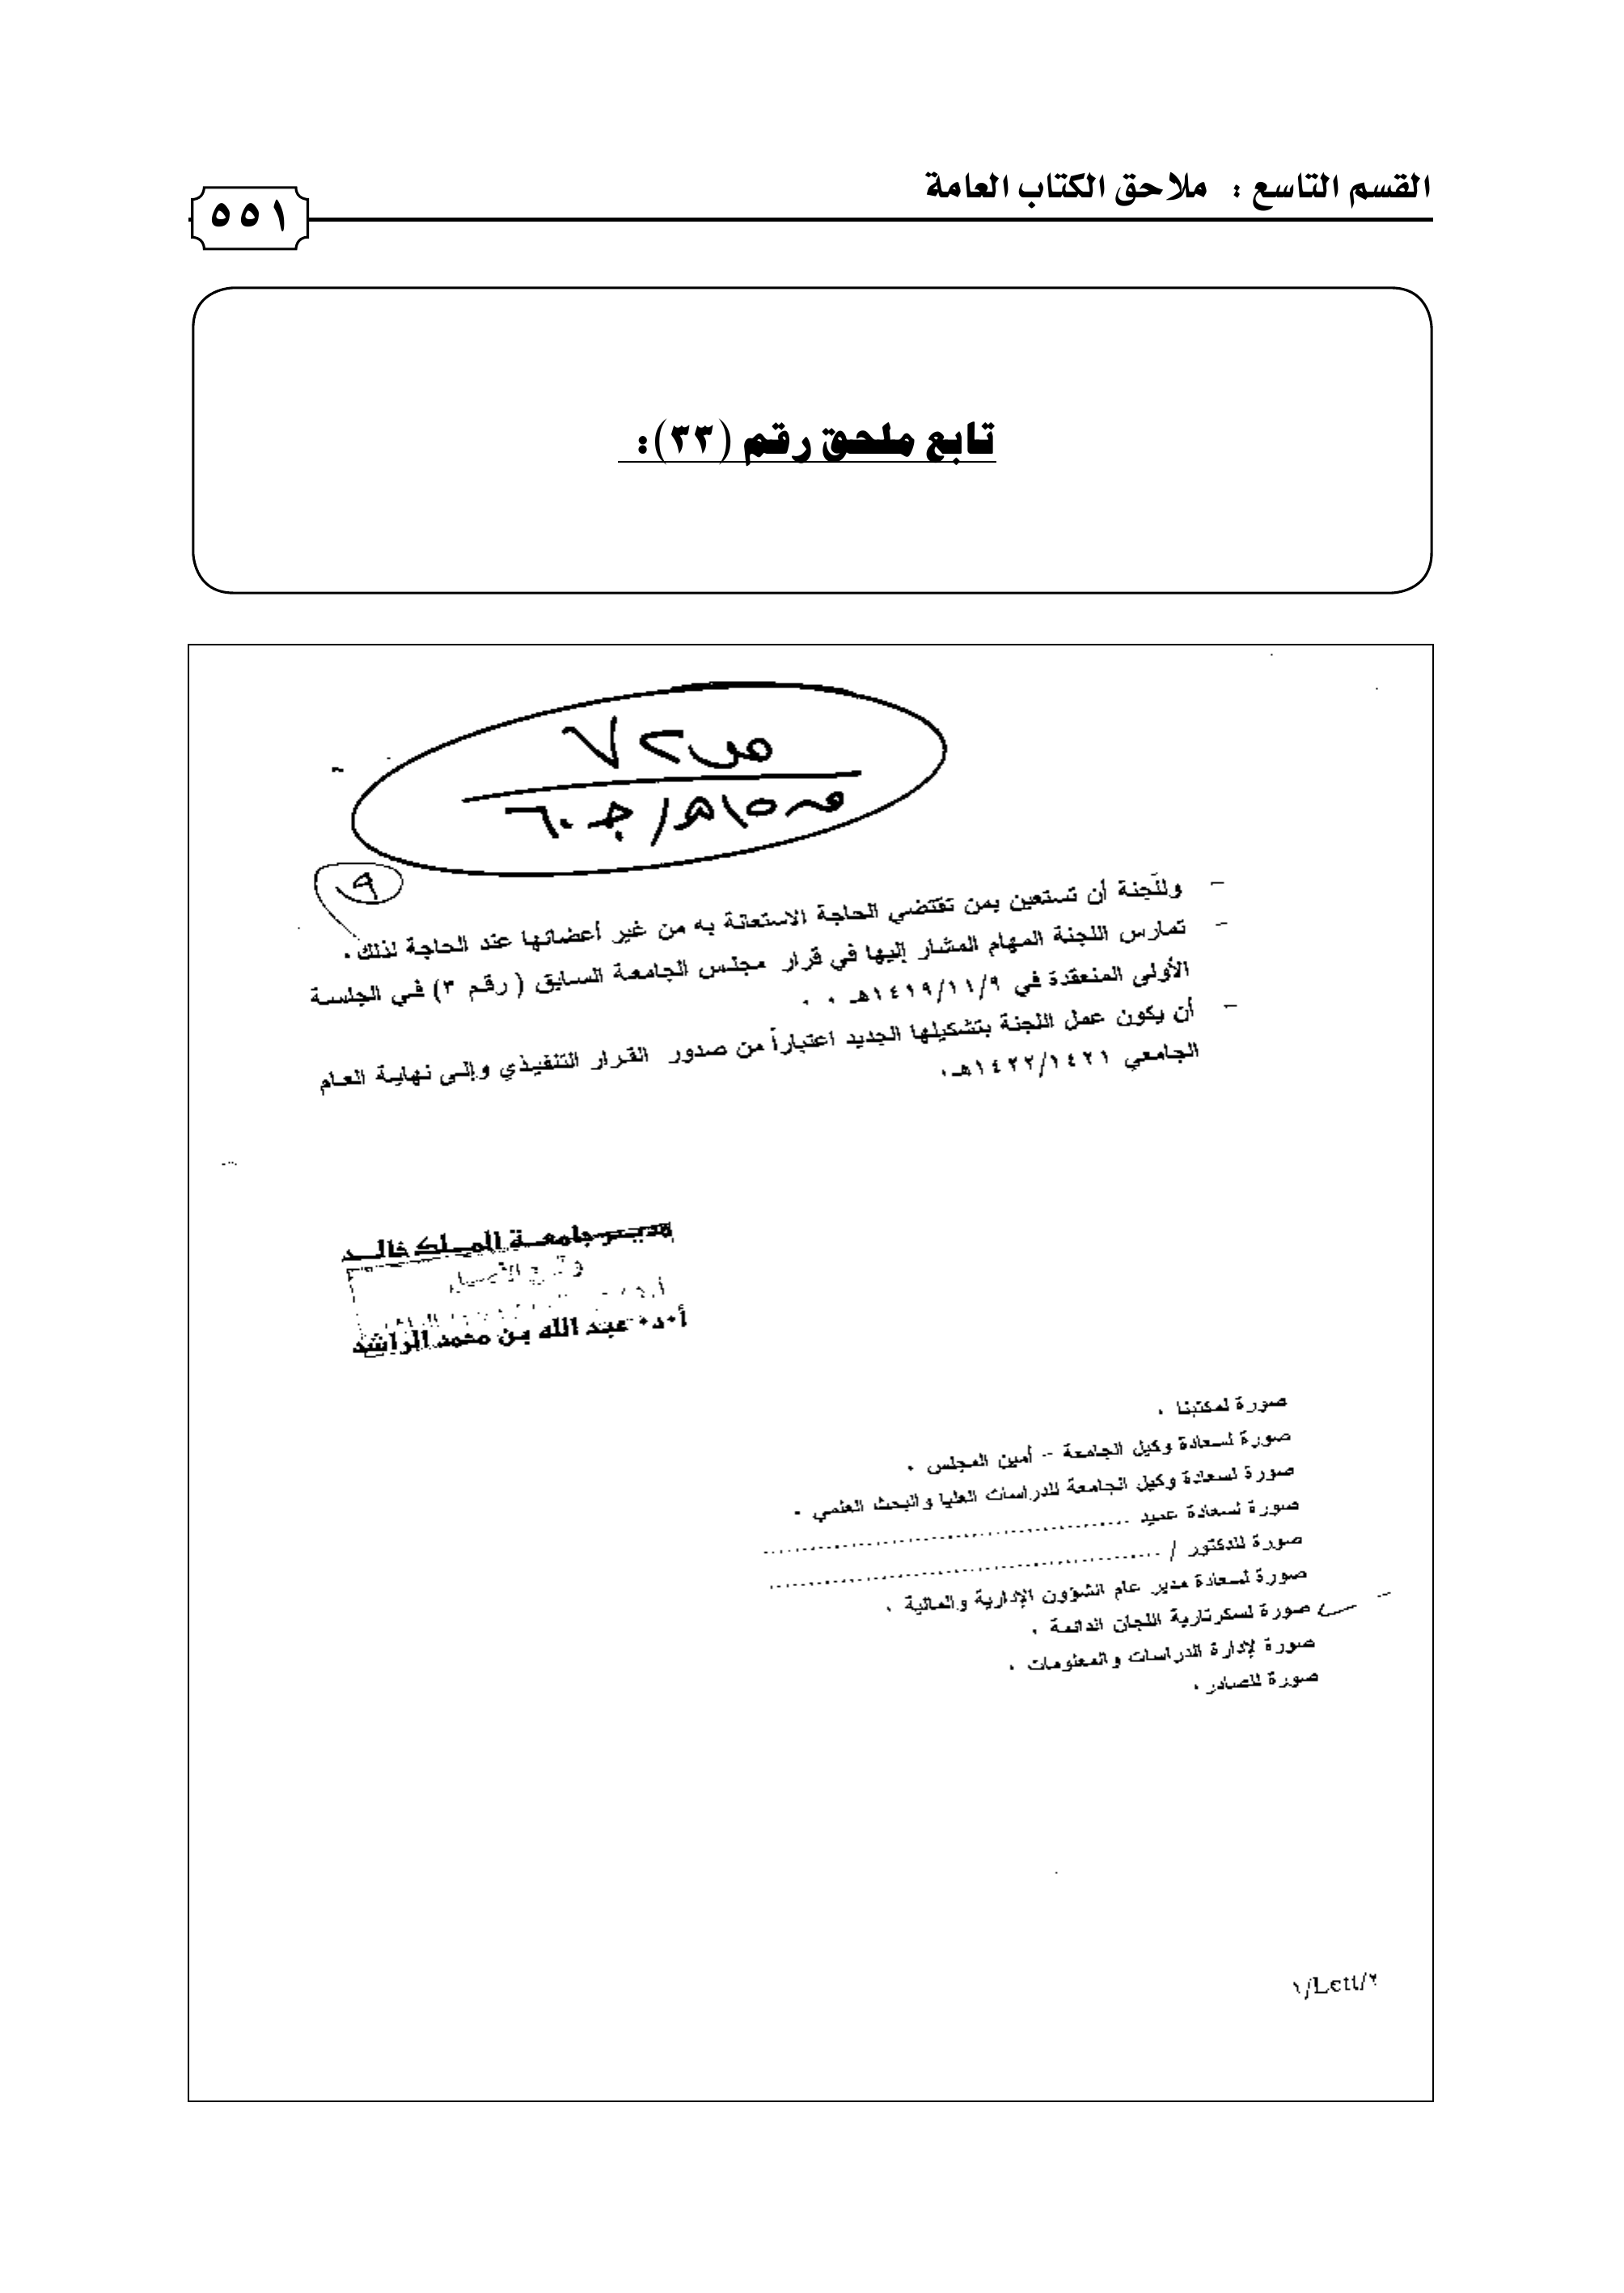 القسم التاسع : ملاحق الكتاب العامة
٥٥١
تابع ملحق رقم (٣٣):
ص ٢٧
٩
– وللّجنة أن تستعين بمن تقتضي الحاجة الاستعانة به من غير أعضائها عند الحاجة لذلك .
– تمارس اللجنة المهام المشار إليها في قرار مجلس الجامعة السابق ( رقم ٣) في الجلسة
الأولى المنعقدة في ١٤١٩/١١/٩هـ . .
– أن يكون عمل اللجنة بتشكيلها الجديد اعتباراً من صدور القرار التنفيذي وإلى نهاية العام
الجامعي ١٤٢٢/١٤٢١هـ.
مدير جامعة الملك خالد
أ.د. عبد الله بن محمد الراشد
صورة لمكتبنا .
صورة لسعادة وكيل الجامعة – أمين المجلس .
صورة لسعادة وكيل الجامعة للدراسات العليا والبحث العلمي .
صورة لسعادة عميد ..................................................
صورة للدكتور / ..................................................
صورة لسعادة مدير عام الشؤون الإدارية والمالية .
صورة لسكرتارية اللجان الدائمة .
صورة لإدارة الدراسات والمعلومات .
صورة للصادر .
١/Lett/٢